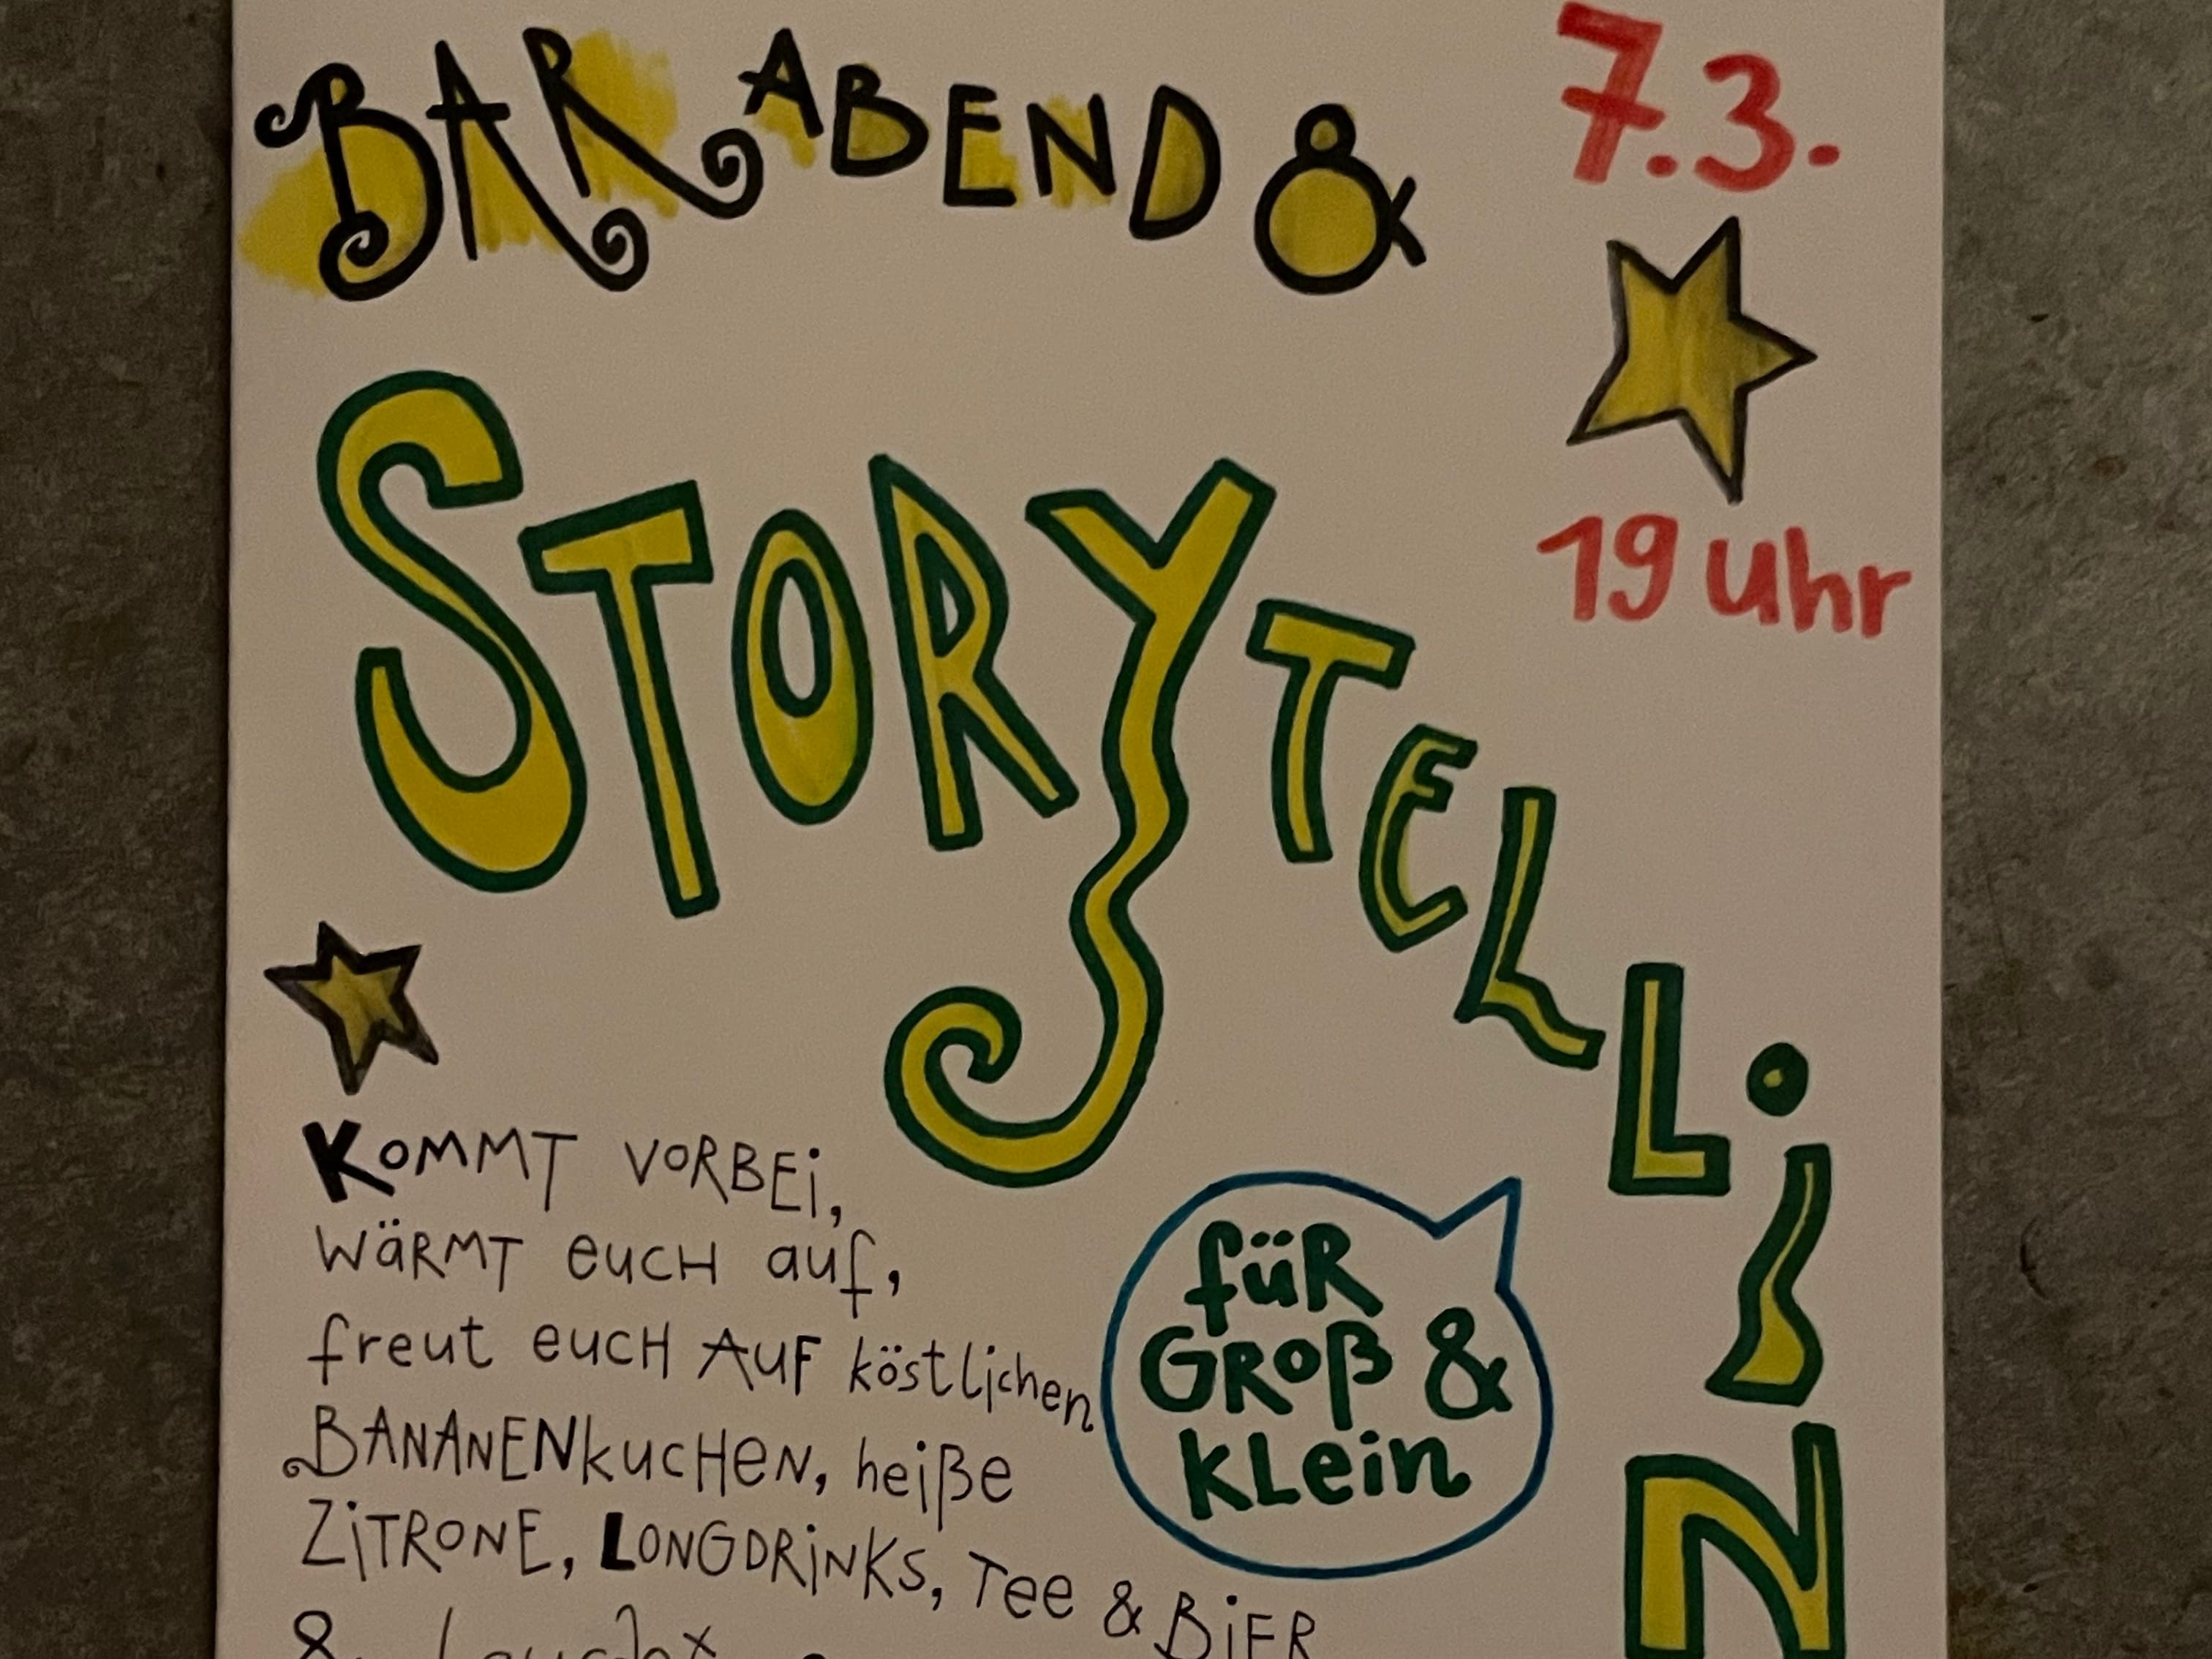 BAR ABEND &
7.3.
19 Uhr
STORYTELLIN
KOMMT VORBEI,
WÄRMT EUCH AUF,
freut EUCH AUF köstlichen
BANANENkuCHEN, heiße
ZITRONE, LONGDRINKS, Tee & BIER
&
füR
GROß &
KLein